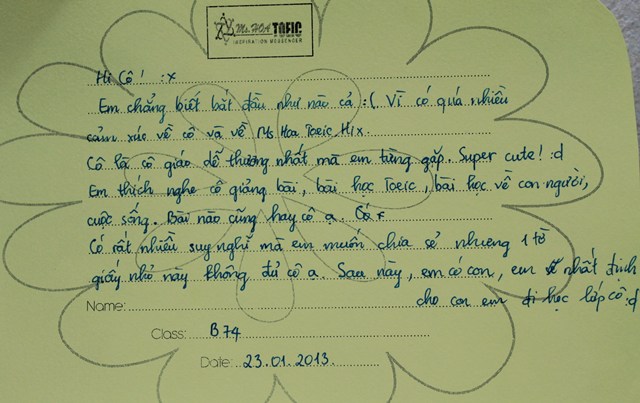 Ms. HOA TOEIC
INSPIRATION MESSENGER
Hi Cô! :x
Em chẳng biết bắt đầu như nào cả :( Vì có quá nhiều
cảm xúc về cô và về Ms Hoa Toeic. Hix.
Cô là cô giáo dễ thương nhất mà em từng gặp. Super cute! :d
Em thích nghe cô giảng bài, bài học Toeic, bài học về con người,
cuộc sống. Bài nào cũng hay cô ạ.
Có rất nhiều suy nghĩ mà em muốn chia sẻ nhưng 1 tờ
giấy nhỏ này không đủ cô ạ. Sau này, em có con, em nhất định
Name: cho con em đi học lớp cô :d
Class: B74
Date: 23.01.2013.